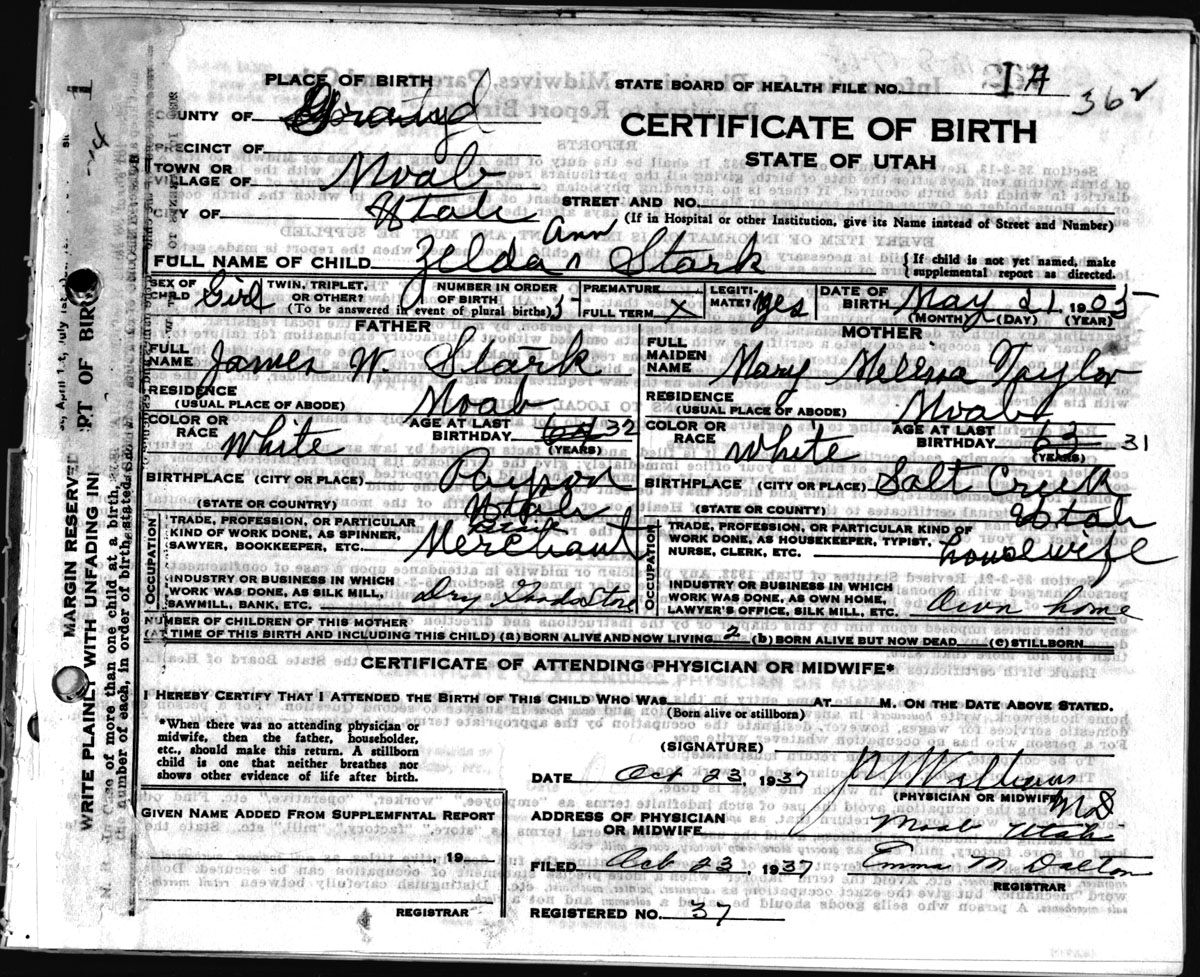 PLACE OF BIRTH
STATE BOARD OF HEALTH FILE NO. 362
COUNTY OF Grand
CERTIFICATE OF BIRTH
PRECINCT OF
STATE OF UTAH
TOWN OR VILLAGE OF Moab
STREET AND NO.
CITY OF Utah
(If in Hospital or other Institution, give its Name instead of Street and Number)
FULL NAME OF CHILD Zelda Ann Stark
{ If child is not yet named, make supplemental report as directed.
SEX OF CHILD Girl
TWIN, TRIPLET, OR OTHER?
NUMBER IN ORDER OF BIRTH
(To be answered in event of plural births)
PREMATURE
FULL TERM X
LEGITIMATE? Yes
DATE OF BIRTH May 21 1905
(MONTH) (DAY) (YEAR)
FATHER
FULL NAME James W. Stark
RESIDENCE (USUAL PLACE OF ABODE) Moab
COLOR OR RACE White
AGE AT LAST BIRTHDAY 32 (YEARS)
BIRTHPLACE (CITY OR PLACE) Payson
(STATE OR COUNTRY) Utah
OCCUPATION
TRADE, PROFESSION, OR PARTICULAR KIND OF WORK DONE, AS SPINNER, SAWYER, BOOKKEEPER, ETC. Merchant
INDUSTRY OR BUSINESS IN WHICH WORK WAS DONE, AS SILK MILL, SAWMILL, BANK, ETC. Dry Goods Store
MOTHER
FULL MAIDEN NAME Mary Taylor
RESIDENCE (USUAL PLACE OF ABODE) Moab
COLOR OR RACE White
AGE AT LAST BIRTHDAY 63 31 (YEARS)
BIRTHPLACE (CITY OR PLACE) Salt Creek
(STATE OR COUNTY) Utah
OCCUPATION
TRADE, PROFESSION, OR PARTICULAR KIND OF WORK DONE, AS HOUSEKEEPER, TYPIST, NURSE, CLERK, ETC. housewife
INDUSTRY OR BUSINESS IN WHICH WORK WAS DONE, AS OWN HOME, LAWYER'S OFFICE, SILK MILL, ETC. Own home
NUMBER OF CHILDREN OF THIS MOTHER
(AT TIME OF THIS BIRTH AND INCLUDING THIS CHILD) (a) BORN ALIVE AND NOW LIVING 2 (b) BORN ALIVE BUT NOW DEAD (c) STILLBORN
CERTIFICATE OF ATTENDING PHYSICIAN OR MIDWIFE*
I HEREBY CERTIFY THAT I ATTENDED THE BIRTH OF THIS CHILD WHO WAS AT M. ON THE DATE ABOVE STATED.
(Born alive or stillborn)
*When there was no attending physician or
midwife, then the father, householder,
etc., should make this return. A stillborn
child is one that neither breathes nor
shows other evidence of life after birth.
(SIGNATURE)
DATE Oct 23, 1937 Williams MD
(PHYSICIAN OR MIDWIFE)
ADDRESS OF PHYSICIAN OR MIDWIFE Moab Utah
GIVEN NAME ADDED FROM SUPPLEMENTAL REPORT
, 19
REGISTRAR
FILED Oct 23, 1937 Emma M. Dalton
REGISTRAR
REGISTERED NO. 37
MARGIN RESERVED
WRITE PLAINLY WITH UNFADING IN
of more than one child at a birth,
number of each, in order of birth, stated.